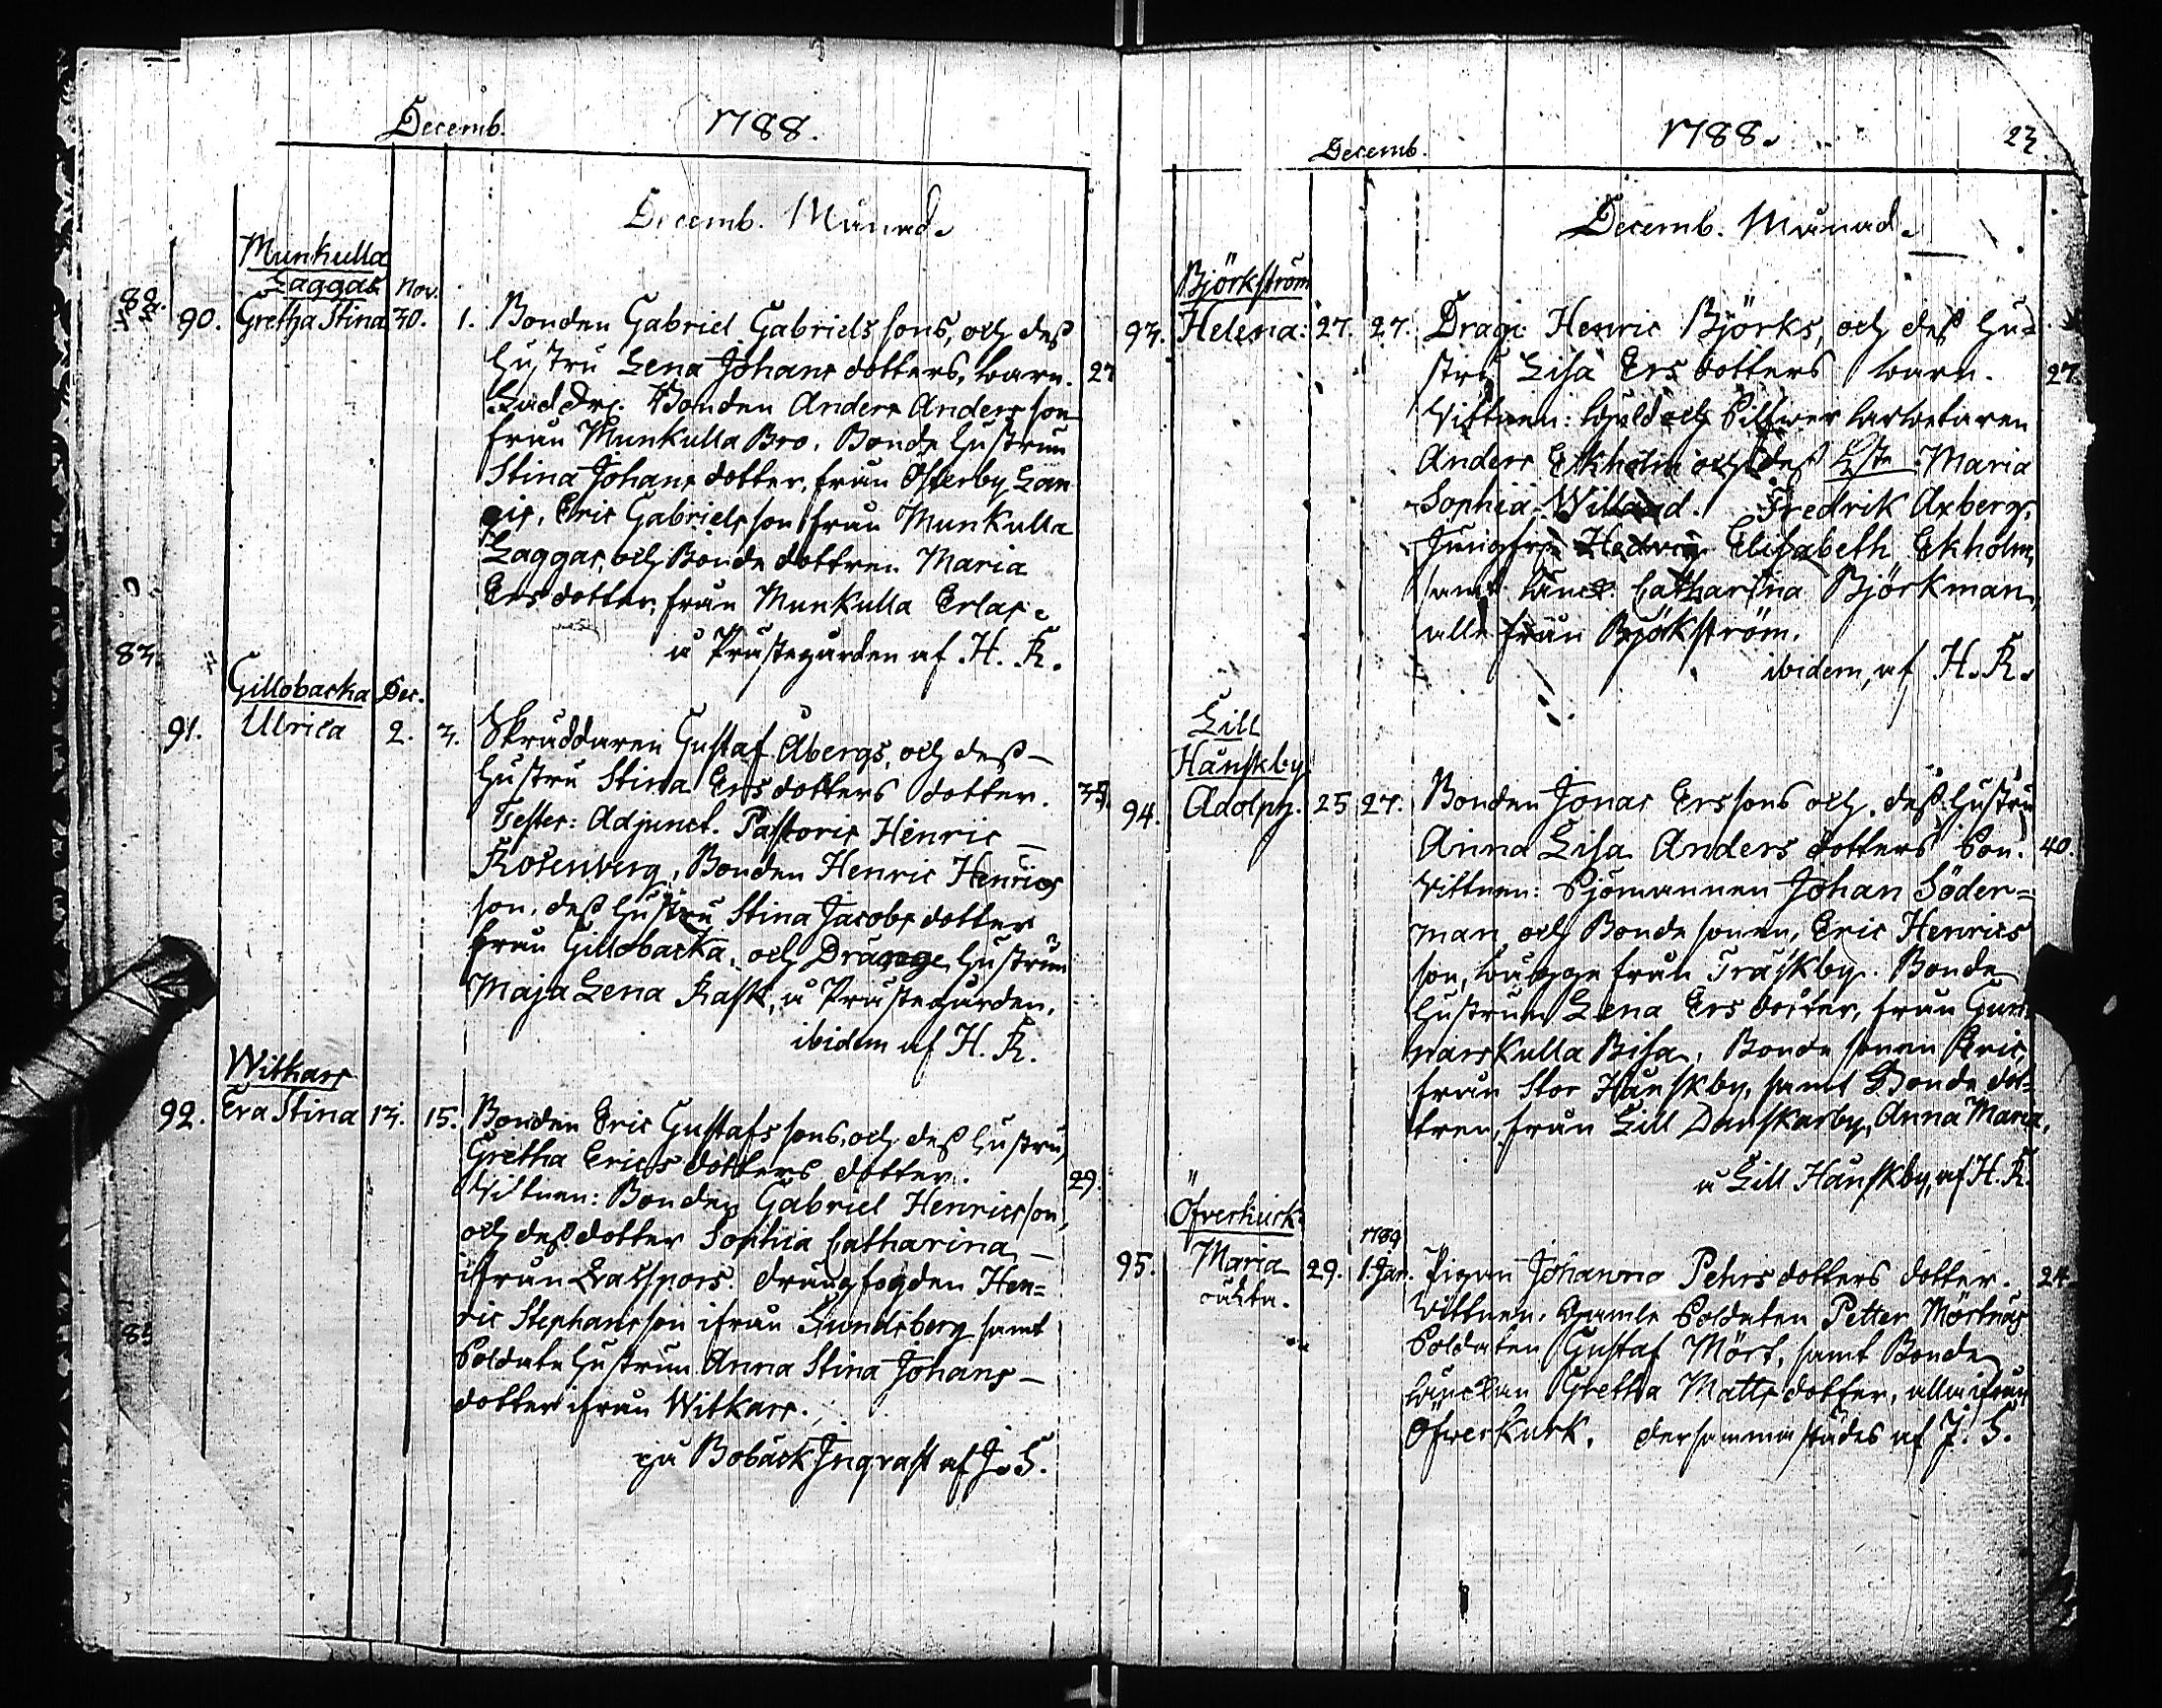 Decemb. 1788.
Decemb. Månad.
Munkulla
Laggas Nov.
90. Gretha Stina 30. 1. Bonden Gabriel Gabriels sons, och deß
hustru Lena Johans dotters, barn. 27
Bonden Anders Anders son
från Munkulla Bro. Bonde hustrun
Stina Johans dotter, från Österby Lan
gis, Eric Gabriels son från Munkulla
Laggas, och Bonde dottren Maria
Ers dotter, från Munkulla Erlas.
å Prästegården af H. R.
83.
Gillobacka Dec.
91. Ulrica 2. 3. Skräddaren Gustaf Åbergs, och deß
hustru Stina Ers dotters dotter.
Testes: Adjunct. Pastoris Henric
Rosenberg, Bonden Henric Henrics
son, deß hustru Stina Jacobs dotter
från Gillobacka, och Drängs hustrun
Maja Lena Rask, å Prästegården.
ibidem af H. R.
Witkars
92. Eva Stina 13. 15. Bonden Eric Gustafs sons, och deß hustru
Gretha Erics dotters dotter. 29.
Wittnen: Bonden Gabriel Henricsson,
och deß dotter Sophia Catharina
ifrån drängfogden Hen=
ric Stephans son ifrån Lundsberg samt
Soldate hustrun Anna Stina Johans
dotter ifrån Witkars.
på Bobäck Ingvast af J. S.
Decemb. 1788. 23
Decemb. Månad.
Björkström
93. Helena: 27. 27. Drag: Henric Björks, och deß hu=
stru Lisa Ers dotters barn. 27.
Wittnen: Guld och Silfwer arbetaren
Anders Ekholm och deß Maria
Sophia Willand. Fredrik Axberg,
Jungfru Hedvig Elisabeth Ekholm,
samt Catharina Björkman,
alla från Björkström.
ibidem, af H. R.
Lill
Hånskby
94. Adolph. 25 27. Bonden Jonas Erssons och deß hustru
Anna Lisa Anders dotters Son. 40.
Wittnen: Sjömannen Johan Söder=
man och Bonde sonen, Eric Henrics
son, bägge från Träskby. Bonde
hustrun Lena Ers dotter, från Gun
narskulla Bisa, Bonde sonen Eric,
från Stor Hånskby, samt Bonde dot=
tren, från Lill Danskarby, Anna Maria.
å Lill Hånskby, af H. R.
Öfverkurk
1789
95. Maria 29. 1. Jan. Pigan Johanna Pehrs dotters dotter. 24.
oäkta.
Wittnen. Gamle Soldaten Petter Mörtnäs
Soldaten Gustaf Mört, samt Bonde
änckan Gretha Matts dotter, alla ifrån
Öfverkurk. dersammastädes af J. S.